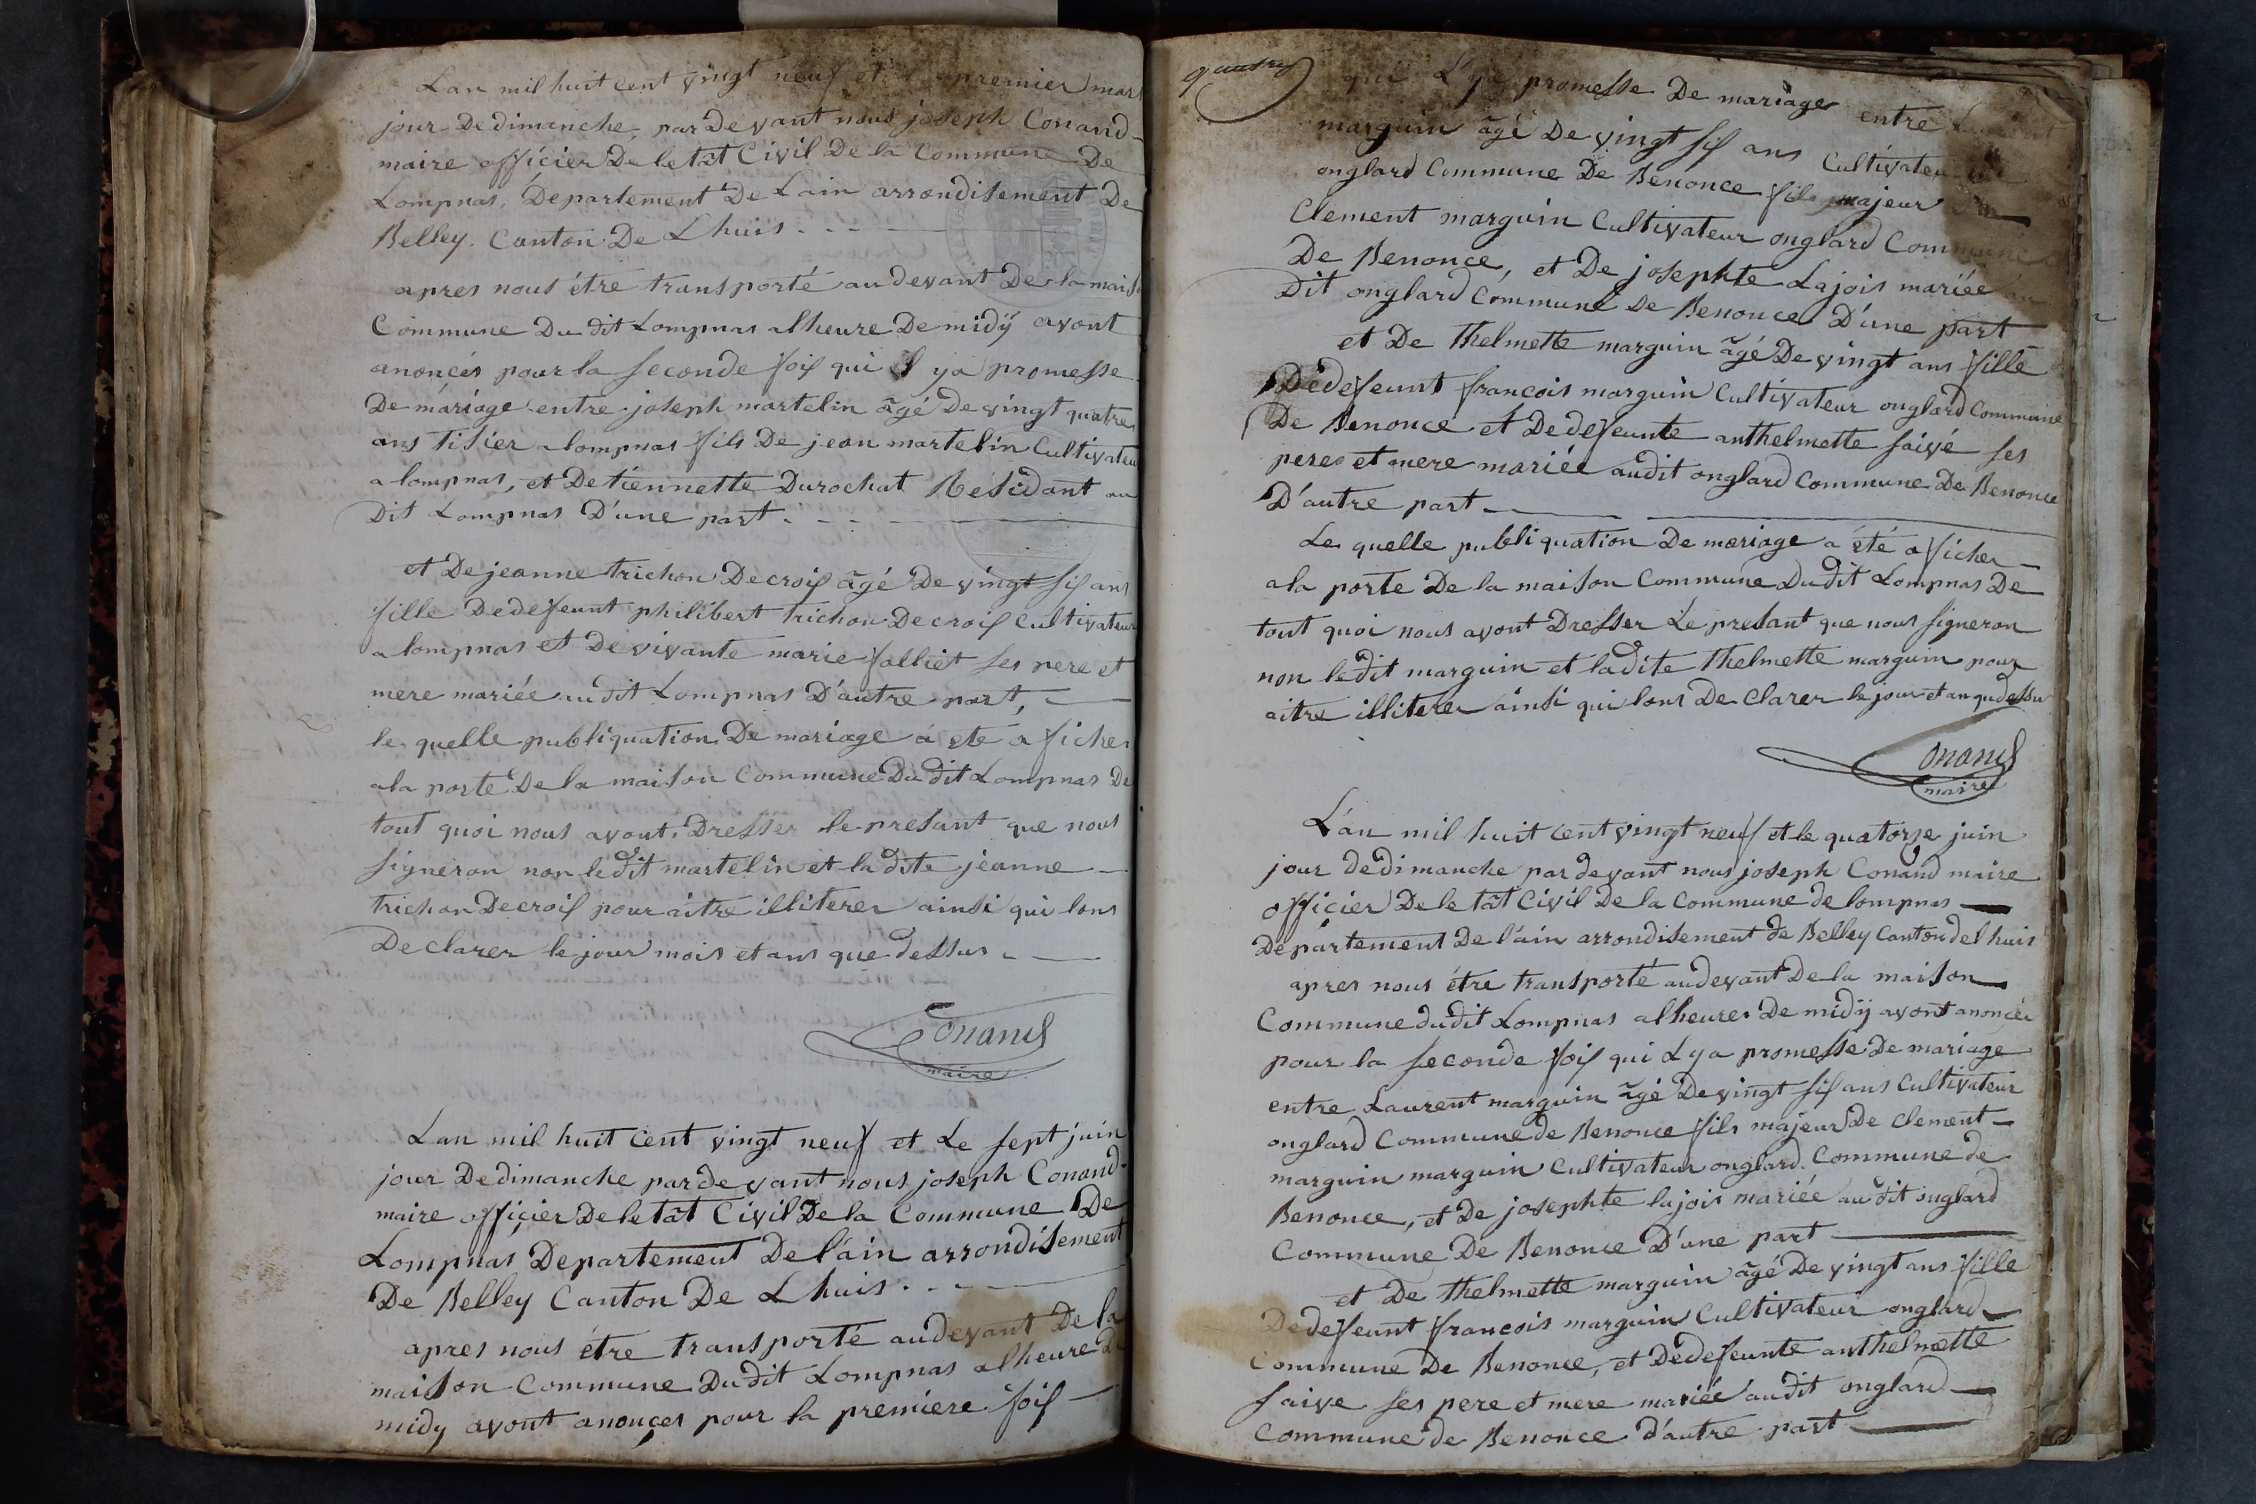 Lan mil huit cent vingt neuf et le premier mars
jour De dimanche, par devant nous joseph Conand
maire officier De letat Civil De la Commune De
Lompnas, Departement De Lain arrondisement De
Belley. Canton De Lhuis
apres nous étre transporté au devant De la mais
Commune Du dit Lompnas alheure De midÿ avont
anoncés pour la seconde fois qui l ya promesse
De mariage entre joseph martelin âgé De vingt quatre
ans tisier a lompnas fils De jean martelin Cultivateu
a lompnas, et Detiennette Durochat Residant au
Dit Lompnas D'une part
et De jeanne trichon Decrois âgé De vingt sis ans
fille Dedefeunt philibert trichon Decrois Cultivateur
a lompnas et De vivante marie falliet ses pere et
mere mariée au dit Lompnas D'autre part,
le quelle publiquation De mariage á eté a ficher
a la porte De la maison Commune Du dit Lompnas De
tout quoi nous avont Dresser le presant que nous
signeron non le dit martelin et la dite jeanne
trichon Decrois pour aitre illiterer ainsi qui lons
De clarer le jour mois et ans que dessus
Conand
maire
Lan mil huit cent vingt neuf et Le sept juin
jour De dimanche par devant nous joseph Conand
maire officier De letat Civil De la Commune De
Lompnas Departement De l'ain arrondisement
De Belley Canton De Lhuis
apres nous étre transporté au devant De la
maison Commune Du dit Lompnas alheure De
midy avont anonçes pour la premiere fois
qui L'ya promesse De mariage entre
marguin âgé De vingt sis ans Cultivateu
onglard Commune De Benonce fils majeur
Clement marguin Cultivateur onglard Commune
De Benonce, et De josephte Lajois mariée au
Dit onglard Commune De Benonce D'une part
et De thelmette marguin âgé De vingt ans fille
Dedefeunt francois marguin Cultivateur onglard Commune
De Benonce et Dedefeunte anthelmette saivé ses
peres et mere mariée audit onglard Commune De Benonce
D'autre part
Le quelle publiquation De mariage a été a ficher
a la porte De la maison Commune Du dit Lompnas De
tout quoi nous avont Dresser Le presant que nous signeron
non le dit marguin et la dite thelmette marguin pour
aitre illiterer ainsi qui lons De clarer le jour et an que dessu
Conand
maire
L'an mil huit cent vingt neuf et le quatorze juin
jour dedimanche par devant nous joseph Conand maire
officier De letat Civil De la Commune de lompnas
Departement De l'ain arrondisement de Belley Canton delhuis
apres nous étre transporté audevant De la maison
Commune dudit Lompnas alheure De midÿ avont anoncér
pour la seconde fois qui Lya promesse De mariage
entre Laurent marguin âgé De vingt sis ans Cultivateur
onglard Commune de Benonce fils majeur De Clement
marguin marguin Cultivateur onglard Commune de
Benonce, et De josephte lajois mariée au dit onglard
Commune De Benonce D'une part
et De thelmette marguin âgé De vingt ans fille
Dedefeunt francois marguin Cultivateur onglard
Commune De Benonce, et Dedefeunte anthelmette
saive ses pere et mere mariée au dit onglard
Commune de Benonce d'autre part